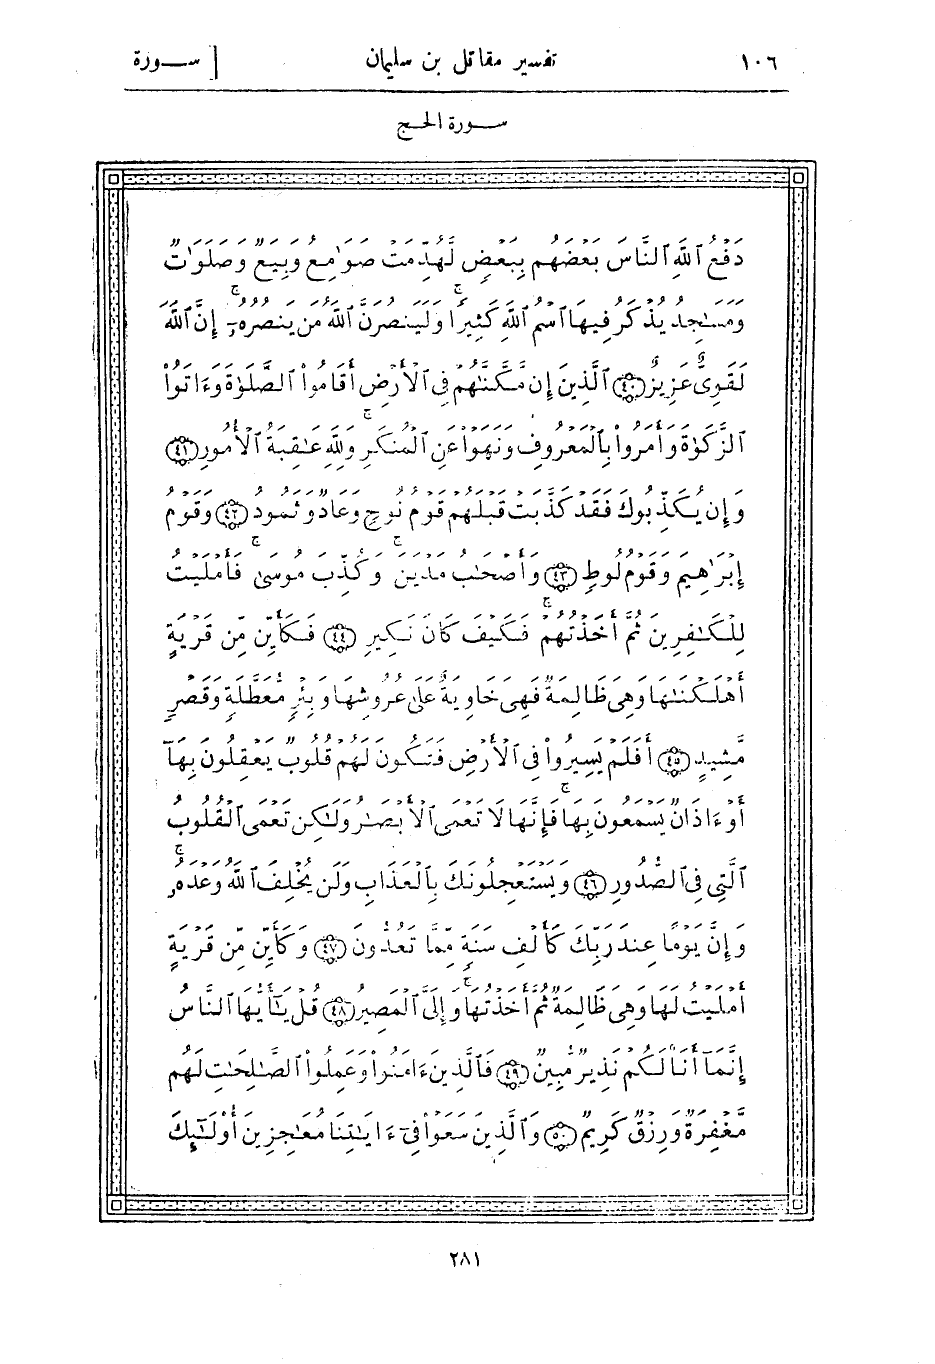 ١٠٦ تفسير مقاتل بن سليمان [ ســورة
ســورة الحـج
دَفْعُ ٱللَّهِ ٱلنَّاسَ بَعْضَهُم بِبَعْضٍ لَّهُدِّمَتْ صَوَٰمِعُ وَبِيَعٌ وَصَلَوَٰتٌ
وَمَسَٰجِدُ يُذْكَرُ فِيهَا ٱسْمُ ٱللَّهِ كَثِيرًا ۗ وَلَيَنصُرَنَّ ٱللَّهُ مَن يَنصُرُهُۥٓ ۗ إِنَّ ٱللَّهَ
لَقَوِىٌّ عَزِيزٌ ﴿٤٠﴾ ٱلَّذِينَ إِن مَّكَّنَّٰهُمْ فِى ٱلْأَرْضِ أَقَامُوا۟ ٱلصَّلَوٰةَ وَءَاتَوُا۟
ٱلزَّكَوٰةَ وَأَمَرُوا۟ بِٱلْمَعْرُوفِ وَنَهَوْا۟ عَنِ ٱلْمُنكَرِ ۗ وَلِلَّهِ عَٰقِبَةُ ٱلْأُمُورِ ﴿٤١﴾
وَإِن يُكَذِّبُوكَ فَقَدْ كَذَّبَتْ قَبْلَهُمْ قَوْمُ نُوحٍ وَعَادٌ وَثَمُودُ ﴿٤٢﴾ وَقَوْمُ
إِبْرَٰهِيمَ وَقَوْمُ لُوطٍ ﴿٤٣﴾ وَأَصْحَٰبُ مَدْيَنَ ۖ وَكُذِّبَ مُوسَىٰ فَأَمْلَيْتُ
لِلْكَٰفِرِينَ ثُمَّ أَخَذْتُهُمْ ۖ فَكَيْفَ كَانَ نَكِيرِ ﴿٤٤﴾ فَكَأَيِّن مِّن قَرْيَةٍ
أَهْلَكْنَٰهَا وَهِىَ ظَالِمَةٌ فَهِىَ خَاوِيَةٌ عَلَىٰ عُرُوشِهَا وَبِئْرٍ مُّعَطَّلَةٍ وَقَصْرٍ
مَّشِيدٍ ﴿٤٥﴾ أَفَلَمْ يَسِيرُوا۟ فِى ٱلْأَرْضِ فَتَكُونَ لَهُمْ قُلُوبٌ يَعْقِلُونَ بِهَآ
أَوْ ءَاذَانٌ يَسْمَعُونَ بِهَا ۖ فَإِنَّهَا لَا تَعْمَى ٱلْأَبْصَٰرُ وَلَٰكِن تَعْمَى ٱلْقُلُوبُ
ٱلَّتِى فِى ٱلصُّدُورِ ﴿٤٦﴾ وَيَسْتَعْجِلُونَكَ بِٱلْعَذَابِ وَلَن يُخْلِفَ ٱللَّهُ وَعْدَهُۥ ۚ
وَإِنَّ يَوْمًا عِندَ رَبِّكَ كَأَلْفِ سَنَةٍ مِّمَّا تَعُدُّونَ ﴿٤٧﴾ وَكَأَيِّن مِّن قَرْيَةٍ
أَمْلَيْتُ لَهَا وَهِىَ ظَالِمَةٌ ثُمَّ أَخَذْتُهَا وَإِلَىَّ ٱلْمَصِيرُ ﴿٤٨﴾ قُلْ يَٰٓأَيُّهَا ٱلنَّاسُ
إِنَّمَآ أَنَا۠ لَكُمْ نَذِيرٌ مُّبِينٌ ﴿٤٩﴾ فَٱلَّذِينَ ءَامَنُوا۟ وَعَمِلُوا۟ ٱلصَّٰلِحَٰتِ لَهُم
مَّغْفِرَةٌ وَرِزْقٌ كَرِيمٌ ﴿٥٠﴾ وَٱلَّذِينَ سَعَوْا۟ فِىٓ ءَايَٰتِنَا مُعَٰجِزِينَ أُو۟لَٰٓئِكَ
٢٨١